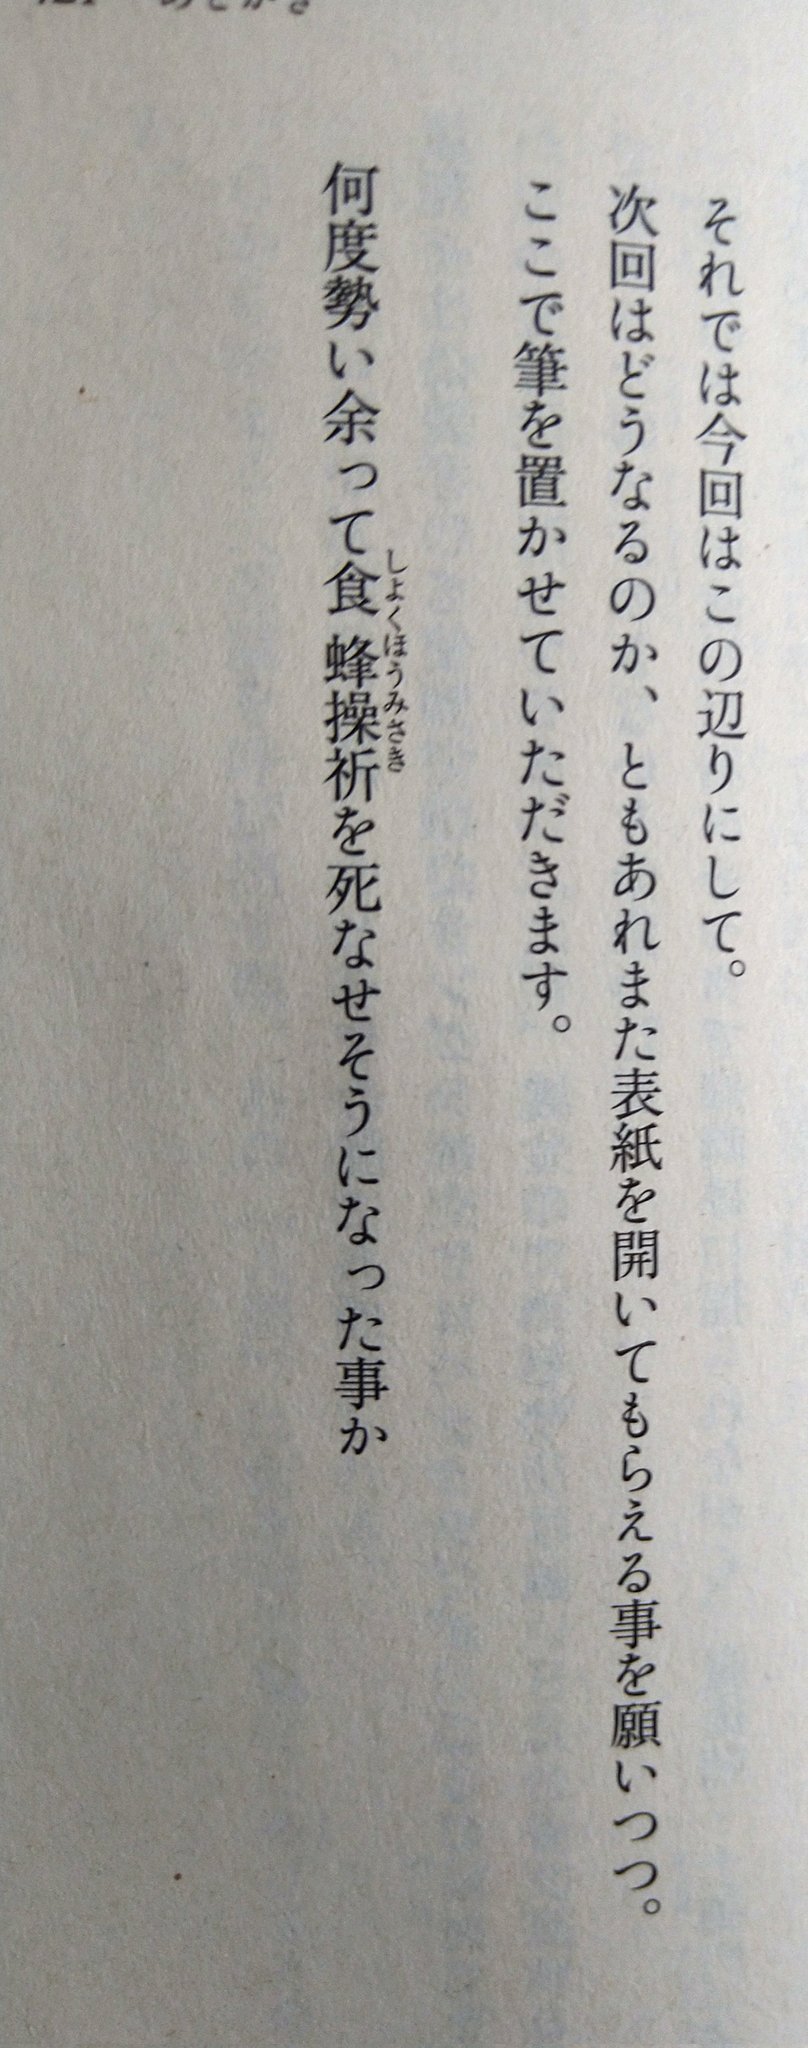 あとがき
それでは今回はこの辺りにして。
次回はどうなるのか、ともあれまた表紙を開いてもらえる事を願いつつ。
ここで筆を置かせていただきます。
何度勢い余って食蜂操祈を死なせそうになった事か
しょくほうみさき